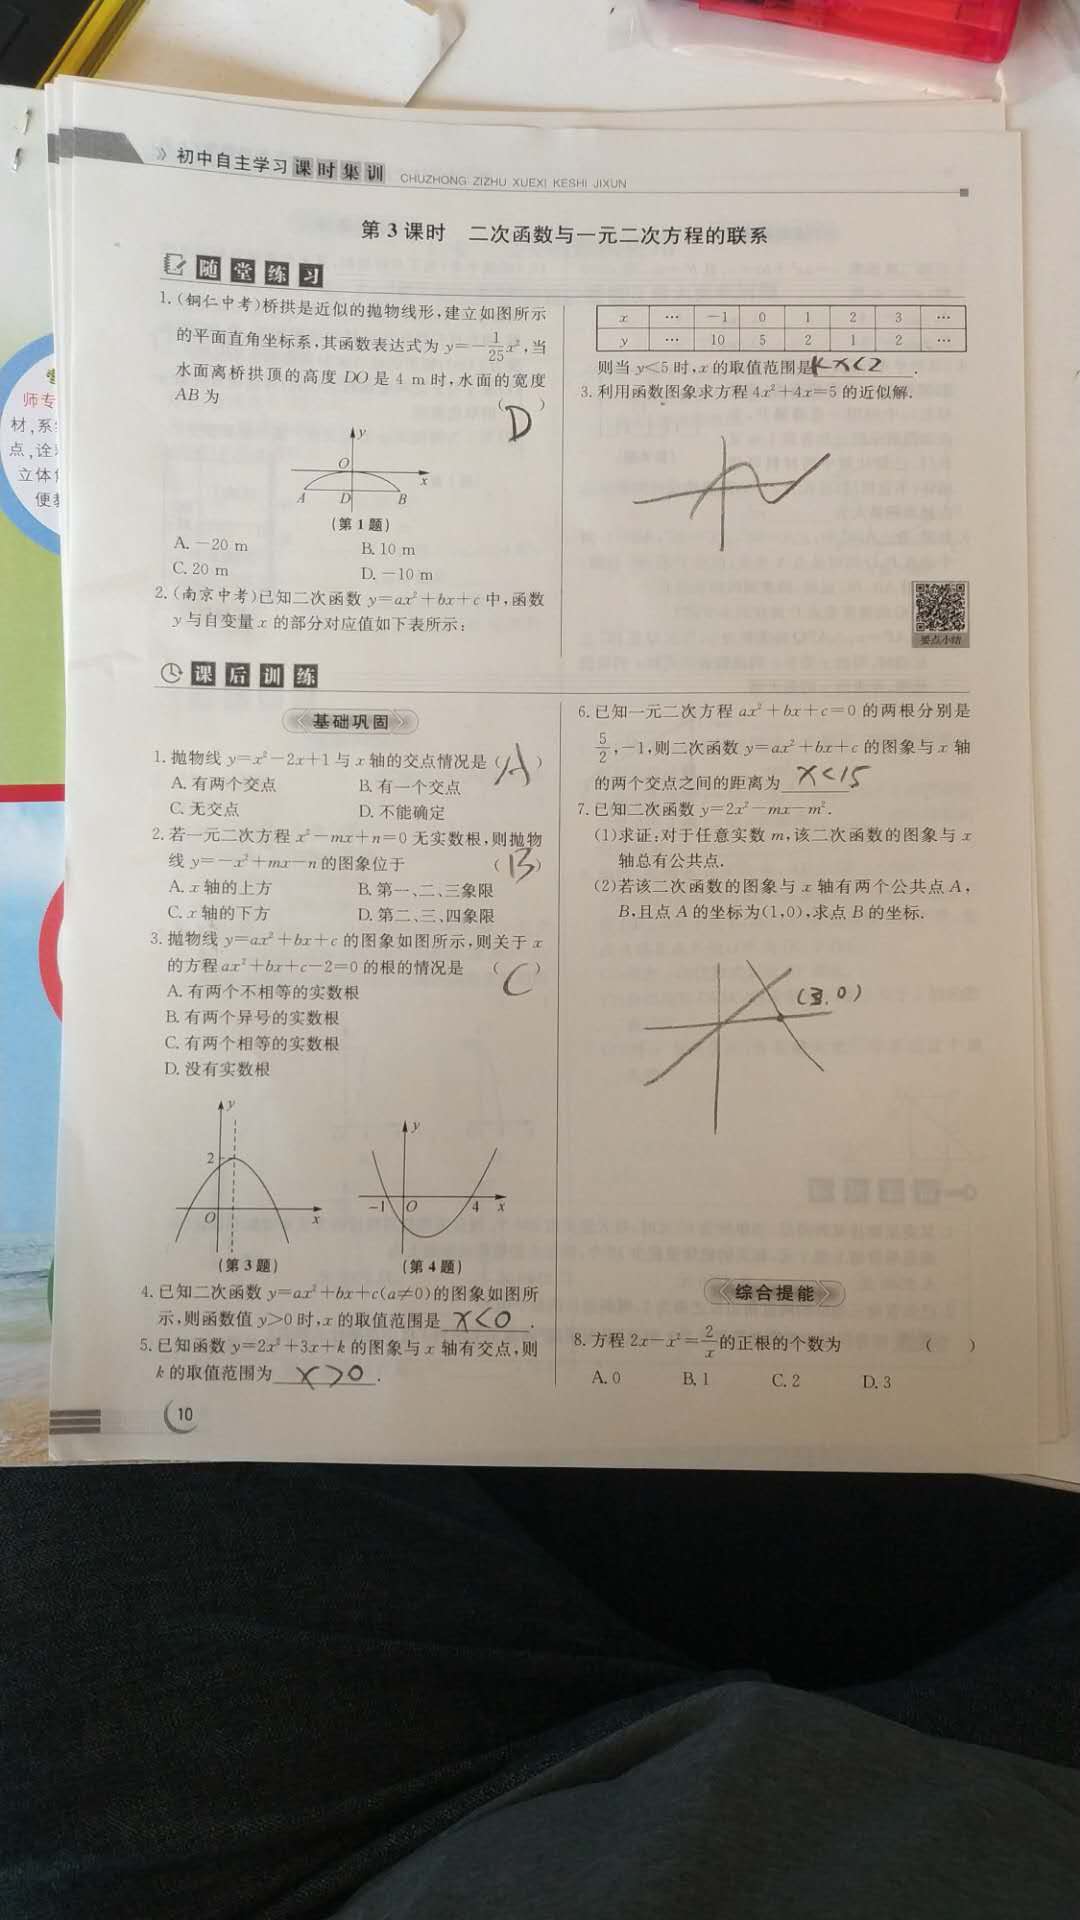 师专
材,系
点,诠
立体
便
》初中自主学习课时集训 CHUZHONG ZIZHU XUEXI KESHI JIXUN
第3课时 二次函数与一元二次方程的联系
随堂练习
1.(铜仁中考)桥拱是近似的抛物线形,建立如图所示
的平面直角坐标系,其函数表达式为 y=-1/25x²,当
水面离桥拱顶的高度 DO 是 4 m 时,水面的宽度
AB 为 ( D )
y
O
x
A D B
(第1题)
A. -20 m B. 10 m
C. 20 m D. -10 m
2.(南京中考)已知二次函数 y=ax²+bx+c 中,函数
y 与自变量 x 的部分对应值如下表所示:
x … -1 0 1 2 3 …
y … 10 5 2 1 2 …
则当 y<5 时,x 的取值范围是 x<2 .
3.利用函数图象求方程 4x²+4x=5 的近似解.
要点小结
课后训练
基础巩固
1.抛物线 y=x²-2x+1 与 x 轴的交点情况是( A )
A. 有两个交点 B. 有一个交点
C. 无交点 D. 不能确定
2.若一元二次方程 x²-mx+n=0 无实数根,则抛物
线 y=-x²+mx-n 的图象位于 ( B )
A. x 轴的上方 B. 第一、二、三象限
C. x 轴的下方 D. 第二、三、四象限
3.抛物线 y=ax²+bx+c 的图象如图所示,则关于 x
的方程 ax²+bx+c-2=0 的根的情况是 ( C )
A. 有两个不相等的实数根
B. 有两个异号的实数根
C. 有两个相等的实数根
D. 没有实数根
y
2
O
x
(第3题)
y
-1 O 4 x
(第4题)
4.已知二次函数 y=ax²+bx+c(a≠0)的图象如图所
示,则函数值 y>0 时,x 的取值范围是 x<0 .
5.已知函数 y=2x²+3x+k 的图象与 x 轴有交点,则
k 的取值范围为 x>0 .
10
6.已知一元二次方程 ax²+bx+c=0 的两根分别是
5/2,-1,则二次函数 y=ax²+bx+c 的图象与 x 轴
的两个交点之间的距离为 x<15
7.已知二次函数 y=2x²-mx-m².
(1)求证:对于任意实数 m,该二次函数的图象与 x
轴总有公共点.
(2)若该二次函数的图象与 x 轴有两个公共点 A,
B,且点 A 的坐标为(1,0),求点 B 的坐标.
(3,0)
综合提能
8.方程 2x-x²=2/x 的正根的个数为 ( )
A. 0 B. 1 C. 2 D. 3